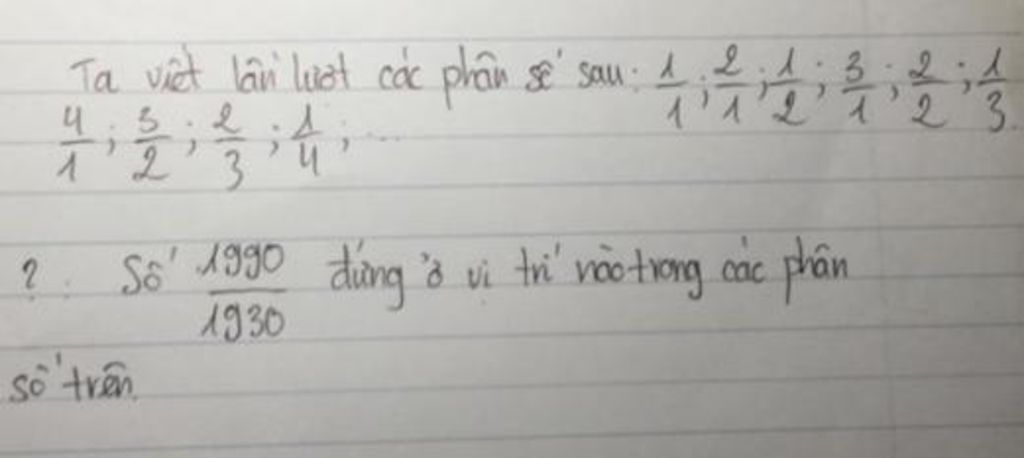 Ta viết lần lượt các phân số sau: 1/1; 2/1; 1/2; 3/1; 2/2; 1/3
4/1; 3/2; 2/3; 1/4; ...
? Số 1990/1930 đứng ở vị trí nào trong các phân
số trên.